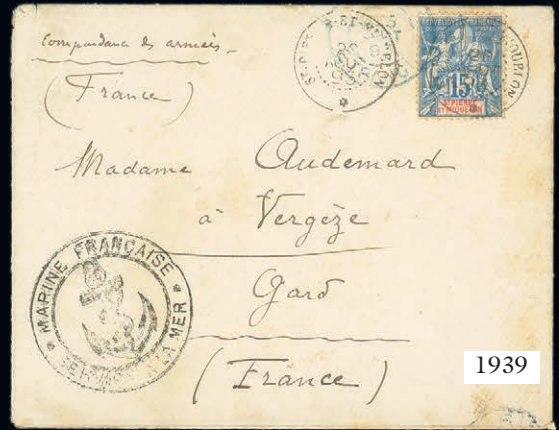 Correspondance des armées
(France)
ST-PIERRE-ET-MIQUELON
RÉPUBLIQUE FRANÇAISE
15
ST PIERRE
ET MIQUELON
Madame Audemard
à Vergèze
Gard
(France)
MARINE FRANÇAISE
SERVICE À LA MER
1939